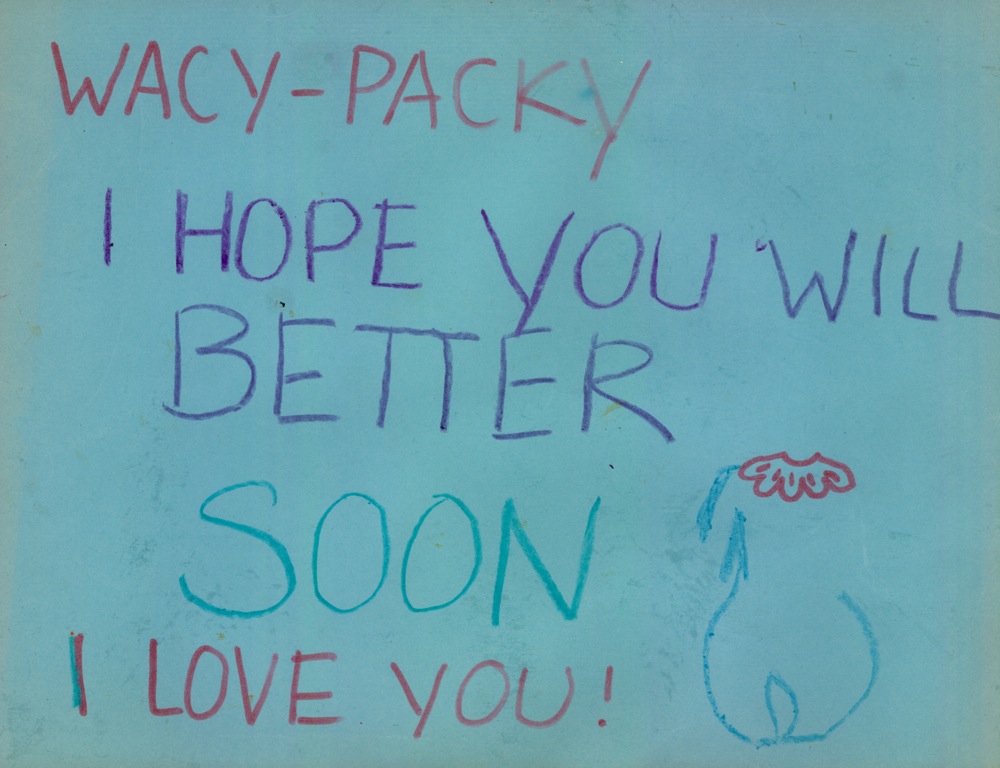 WACY-PACKY
I HOPE YOU WILL
BETTER
SOON
I LOVE YOU!